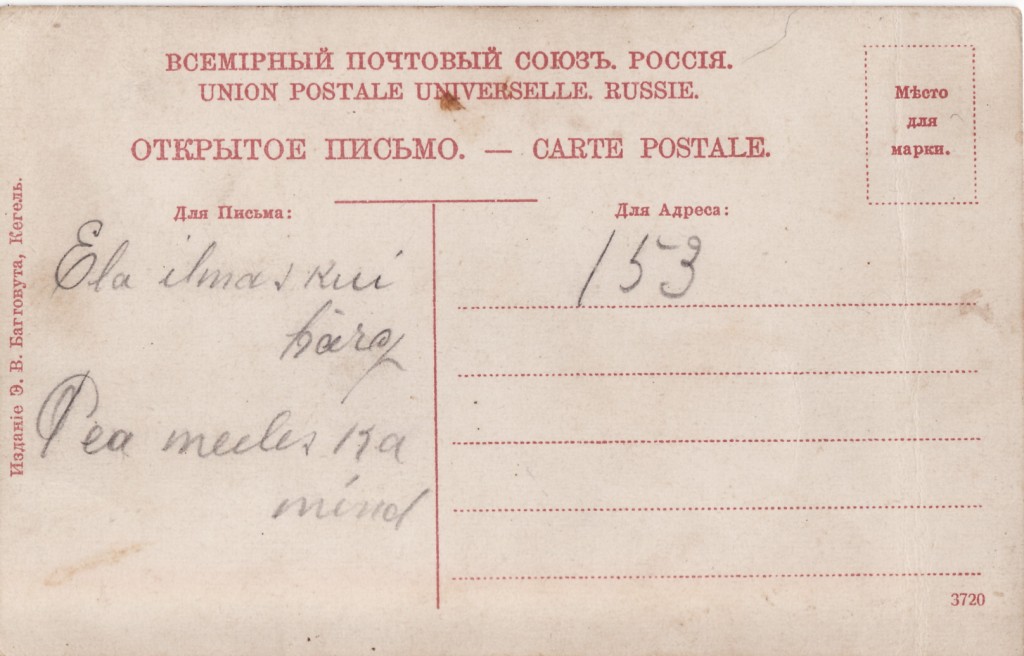 ВСЕМІРНЫЙ ПОЧТОВЫЙ СОЮЗЪ. РОССІЯ.
UNION POSTALE UNIVERSELLE. RUSSIE.
ОТКРЫТОЕ ПИСЬМО. — CARTE POSTALE.
Мѣсто
для
марки.
Для Письма:
Ela ilmas kui
härg
Pea meeles ka
mind
Для Адреса:
153
Изданіе Э. В. Багговута, Кегель.
3720